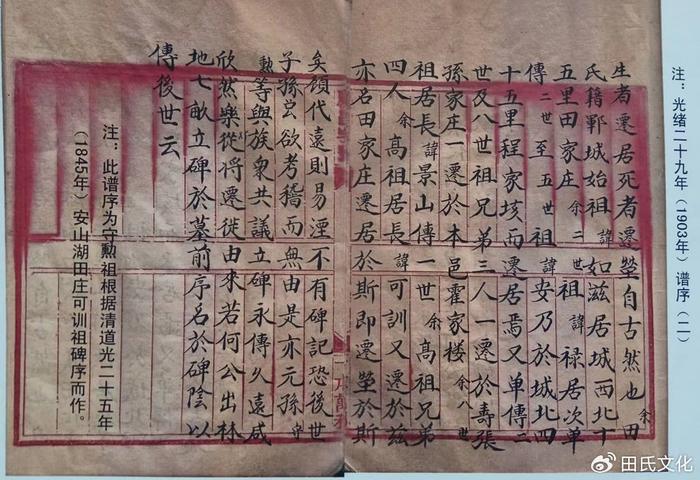 注：光绪二十九年（1903年）谱序（二）
生者遷居死者遷塋自古然也余田
氏籍鄆城始祖諱如兹居城西北十
五里田家庄余二世祖諱禄居次单
傳二世至五世祖諱安乃於城北四
十五里程家垓而遷居焉又单傳二
世及八世祖兄弟三人一遷於壽張
孫家庄一遷於本邑霍家楼余八世
祖居長諱景山傳一世余高祖兄弟
四人余高祖居長諱可訓又遷於兹
亦名田家庄遷居於斯即遷塋於斯
矣顧代遠則易湮不有碑記恐後世
子孫虽欲考稽而無由是亦元孫守
勲等與族衆共議立碑永傳久遠咸
欣然樂從将遷徙由來若何公出林
地七畝立碑於墓前序名於碑陰以
傳後世云
注：此谱序为守勲祖根据清道光二十五年
（1845年）安山湖田庄可训祖碑序而作。
田氏文化